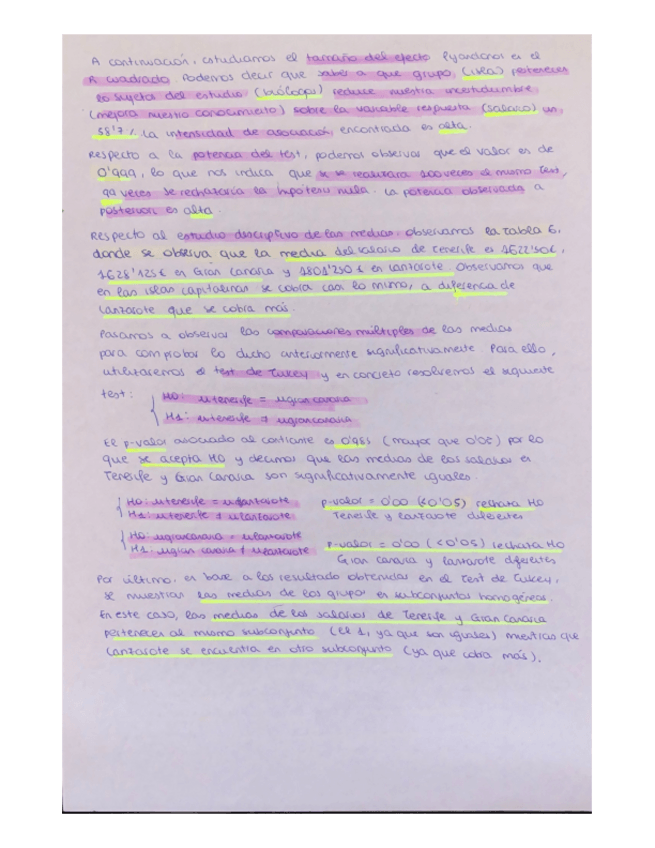 A continuación, estudiamos el tamaño del efecto fijandonos en el
R cuadrado. Podemos decir que saber a que grupo, (isla) pertenecen
los sujetos del estudio, (biólogos) reduce nuestra incertidumbre
(mejora nuestro conocimiento) sobre la variable respuesta (salario) un
58'7%. La intensidad de asociación encontrada es alta.
Respecto a la potencia del test, podemos observar que el valor es de
0'999, lo que nos indica que si se realizara 100 veces el mismo test,
99 veces se rechataría la hipótesis nula. La potencia observada a
posteriori es alta.
Respecto al estudio descriptivo de las medias, observamos la tabla 6,
donde se observa que la media del salario de tenerife es 1622'50€,
1628'125€ en Gran Canaria y 1801'250€ en Lanzarote. Observamos que
en las islas capitalinas se cobra casi lo mismo, a diferencia de
Lanzarote que se cobra más.
Pasamos a observar las comparaciones múltiples de las medias
para comprobar lo dicho anteriormente significativamente. Para ello,
utilizaremos el test de Tukey y en concreto resolvemos el siguiente
test: { H0: μtenerife = μgran canaria
H1: μtenerife ≠ μgran canaria
El p-valor asociado al contraste es 0'981 (mayor que 0'05) por lo
que se acepta H0 y decimos que las medias de los salarios en
Tenerife y Gran Canaria son significativamente iguales.
{ H0: μtenerife = μlanzarote p-valor = 0'00 (<0'05) rechaza H0
H1: μtenerife ≠ μlanzarote Tenerife y Lanzarote diferentes
{ H0: μgran canaria = μlanzarote p-valor = 0'00 (<0'05) rechaza H0
H1: μgran canaria ≠ μlanzarote Gran Canaria y Lanzarote diferentes
Por último, en base a los resultado obtenidos en el Test de Tukey,
se muestran las medias de los grupos en subconjuntos homogéneos.
En este caso, las medias de los salarios de Tenerife y Gran Canaria
pertenecen al mismo subconjunto (el 1, ya que son iguales) mientras que
Lanzarote se encuentra en otro subconjunto (ya que cobra más).